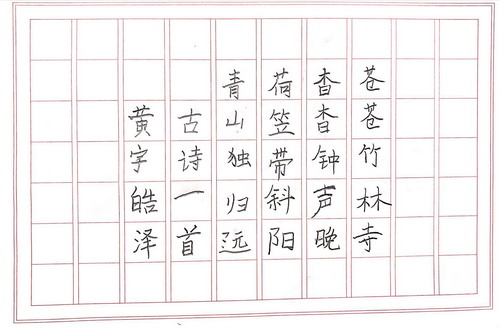 苍苍竹林寺
杳杳钟声晚
荷笠带斜阳
青山独归远
古诗一首
黄宇皓泽